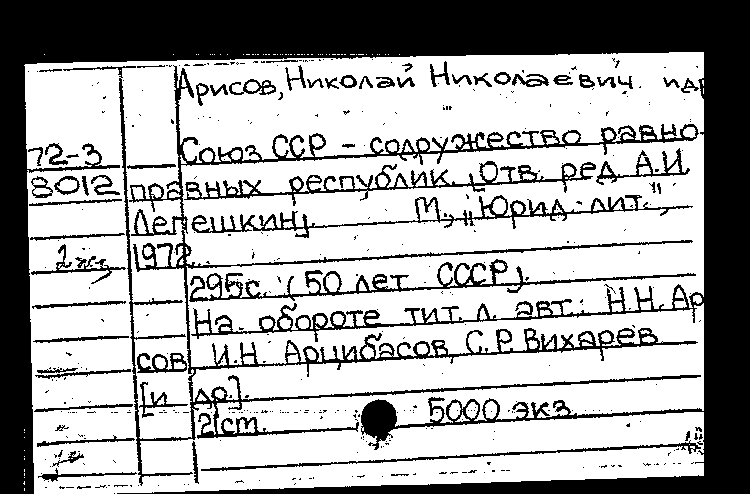 Арисов, Николай Николаевич. и др
72-3 Союз ССР - содружество равно-
8012 правных республик. [Отв. ред. А.И.
Лепешкин]. М., "Юрид. лит.",
2 экз. 1972.
295с. (50 лет СССР).
На обороте тит. л. авт.: Н.Н. Ар
сов, И.Н. Арцибасов, С.Р. Вихарев
[и др].
21ст. 5000 экз.